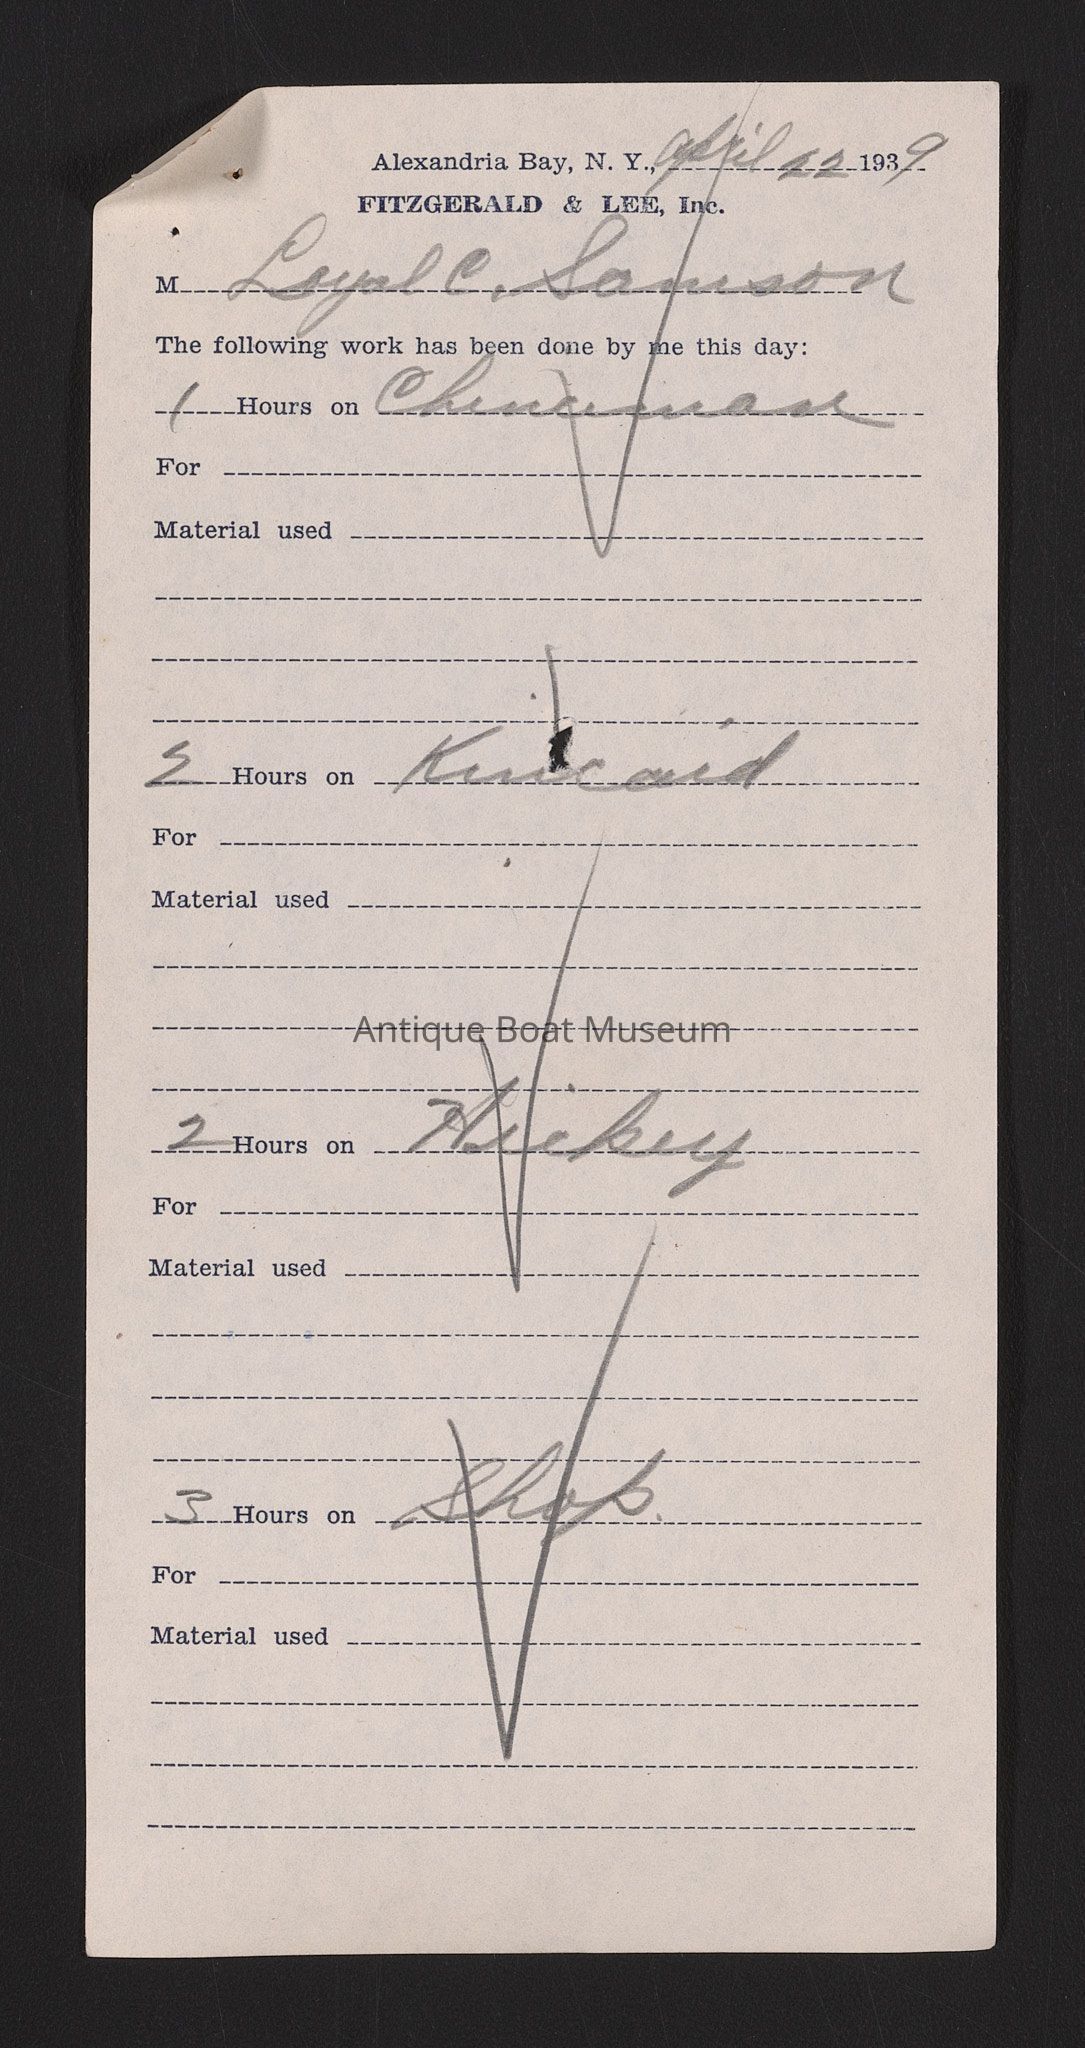 Alexandria Bay, N. Y., April 22 1939
FITZGERALD & LEE, Inc.
M Loyal C. Samson
The following work has been done by me this day:
1 Hours on
For
Material used
2 Hours on Kincaid
For
Material used
Antique Boat Museum
2 Hours on Hickey
For
Material used
3 Hours on Shop.
For
Material used